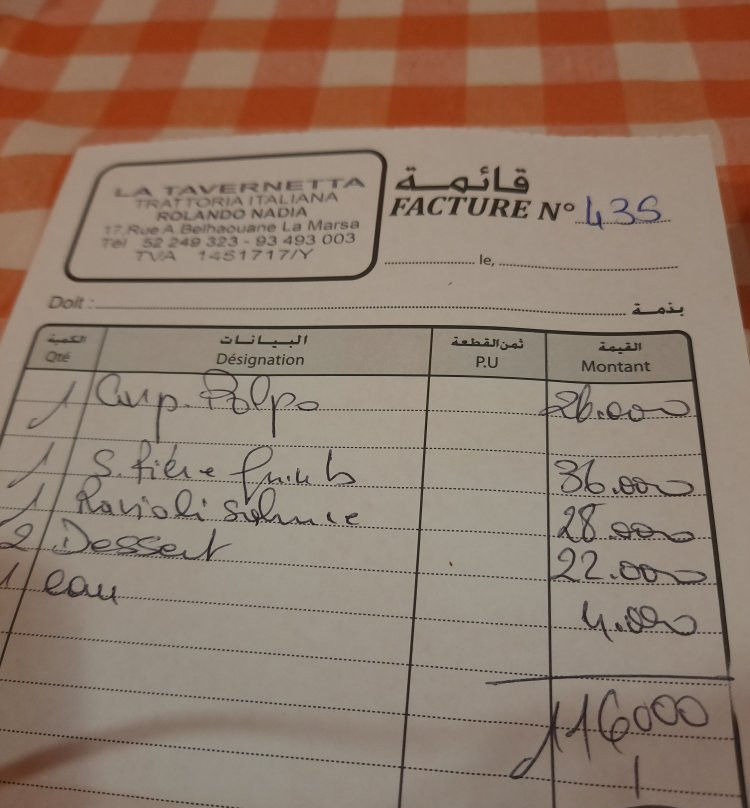 LA TAVERNETTA
TRATTORIA ITALIANA
ROLANDO NADIA
17,Rue A.Belhaouane La Marsa
Tél 52 249 323 - 93 493 003
TVA 1451717/Y
قائمة
FACTURE N° 435
le,
Doit : بذمة
الكمية البيانات ثمن القطعة القيمة
Qté Désignation P.U Montant
1 Carp. Polpo 26.000
1 36.000
1 Ravioli 28.000
2 Dessert 22.000
1 eau 4.000
116000